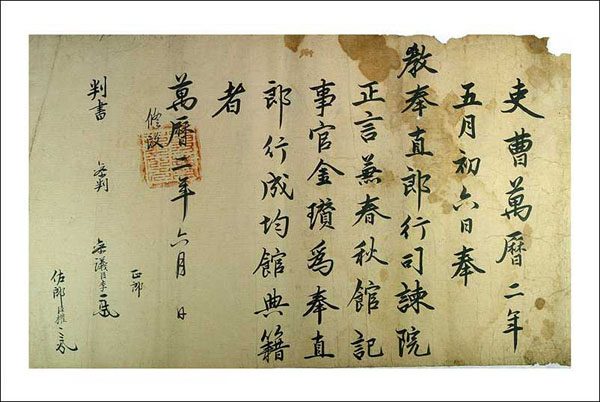 吏曹萬曆二年
五月初六日奉
敎奉直郎行司諫院
正言兼春秋館記
事官金瓚爲奉直
郎行成均館典籍
者
萬曆二年六月 日
判書
參判
參議臣李
正郎
佐郎臣權